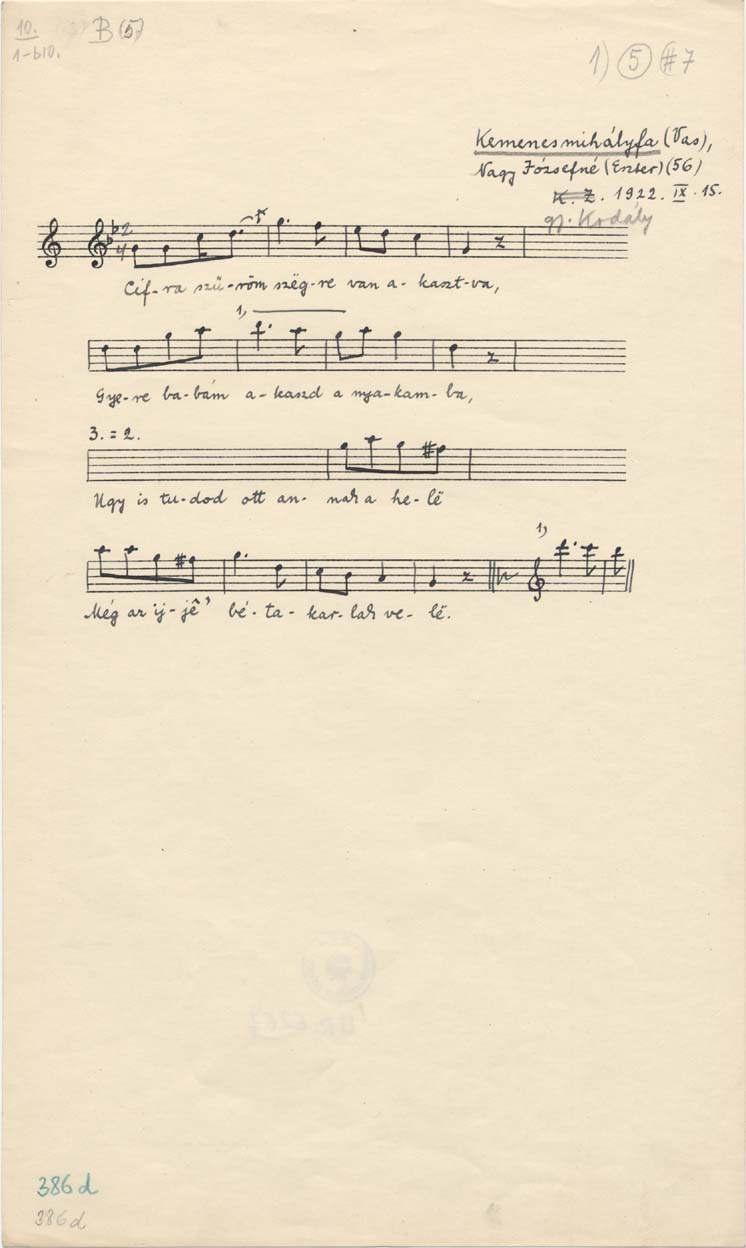 10.
1-b10.
B (5)
1) 5 #7
Kemenesmihályfa (Vas),
Nagy Józsefné (Eszter) (56)
K. Z. 1922. IX. 15.
gy. Kodály
2
4
Cif-ra szü-röm szëg-re van a-kaszt-va,
1,
Gye-re ba-bám a-kaszd a nya-kam-ba,
3. = 2.
Ugy is tu-dod ott an-nak a he-lë
1)
Még az ij-jê' bé-ta-kar-lak ve-lë.
386 d
386 d